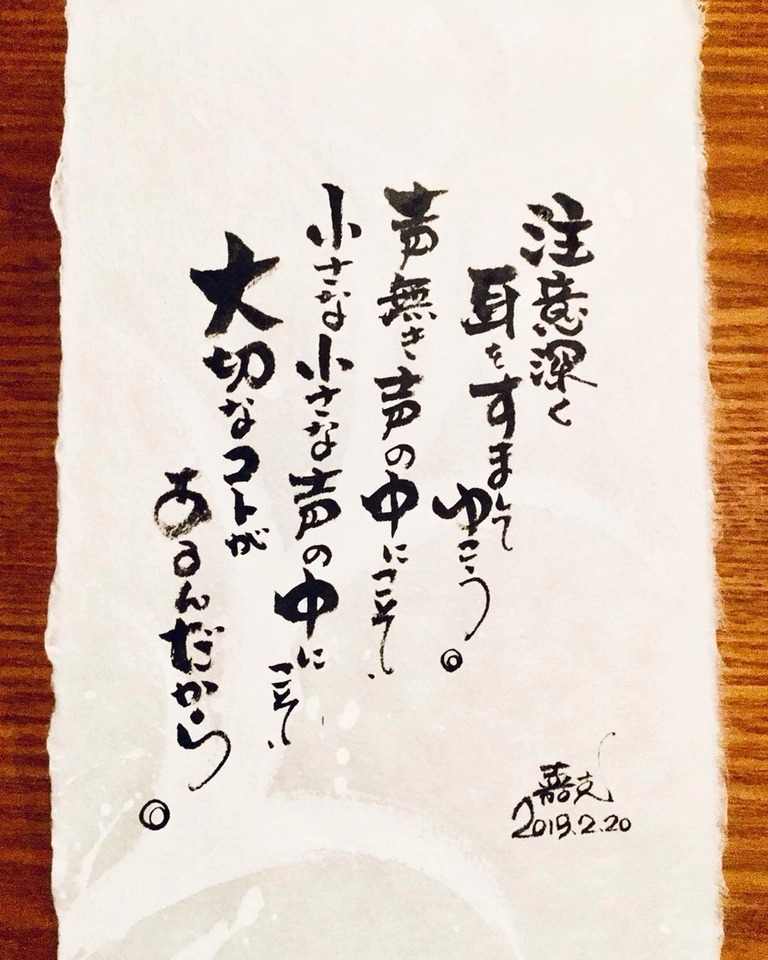 注意深く
耳をすまして
ゆこう。
声無き声の中にこそ、
小さな小さな声の中に
こそ、
大切なコトが
あるんだから。
2019.2.20